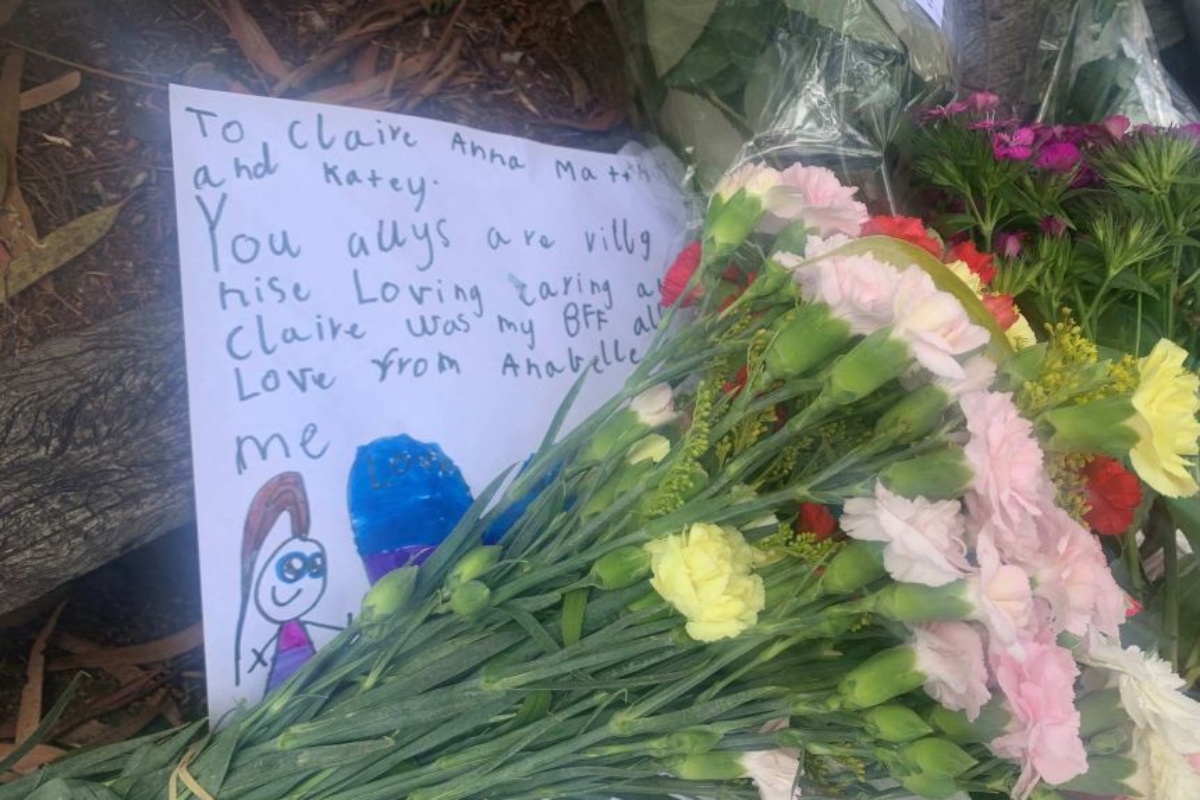 To Claire Anna Matth
and Katey.
You auys are rillg
nise Loving caring a
Claire was my BFF al
Love from Anabelle
me
Love